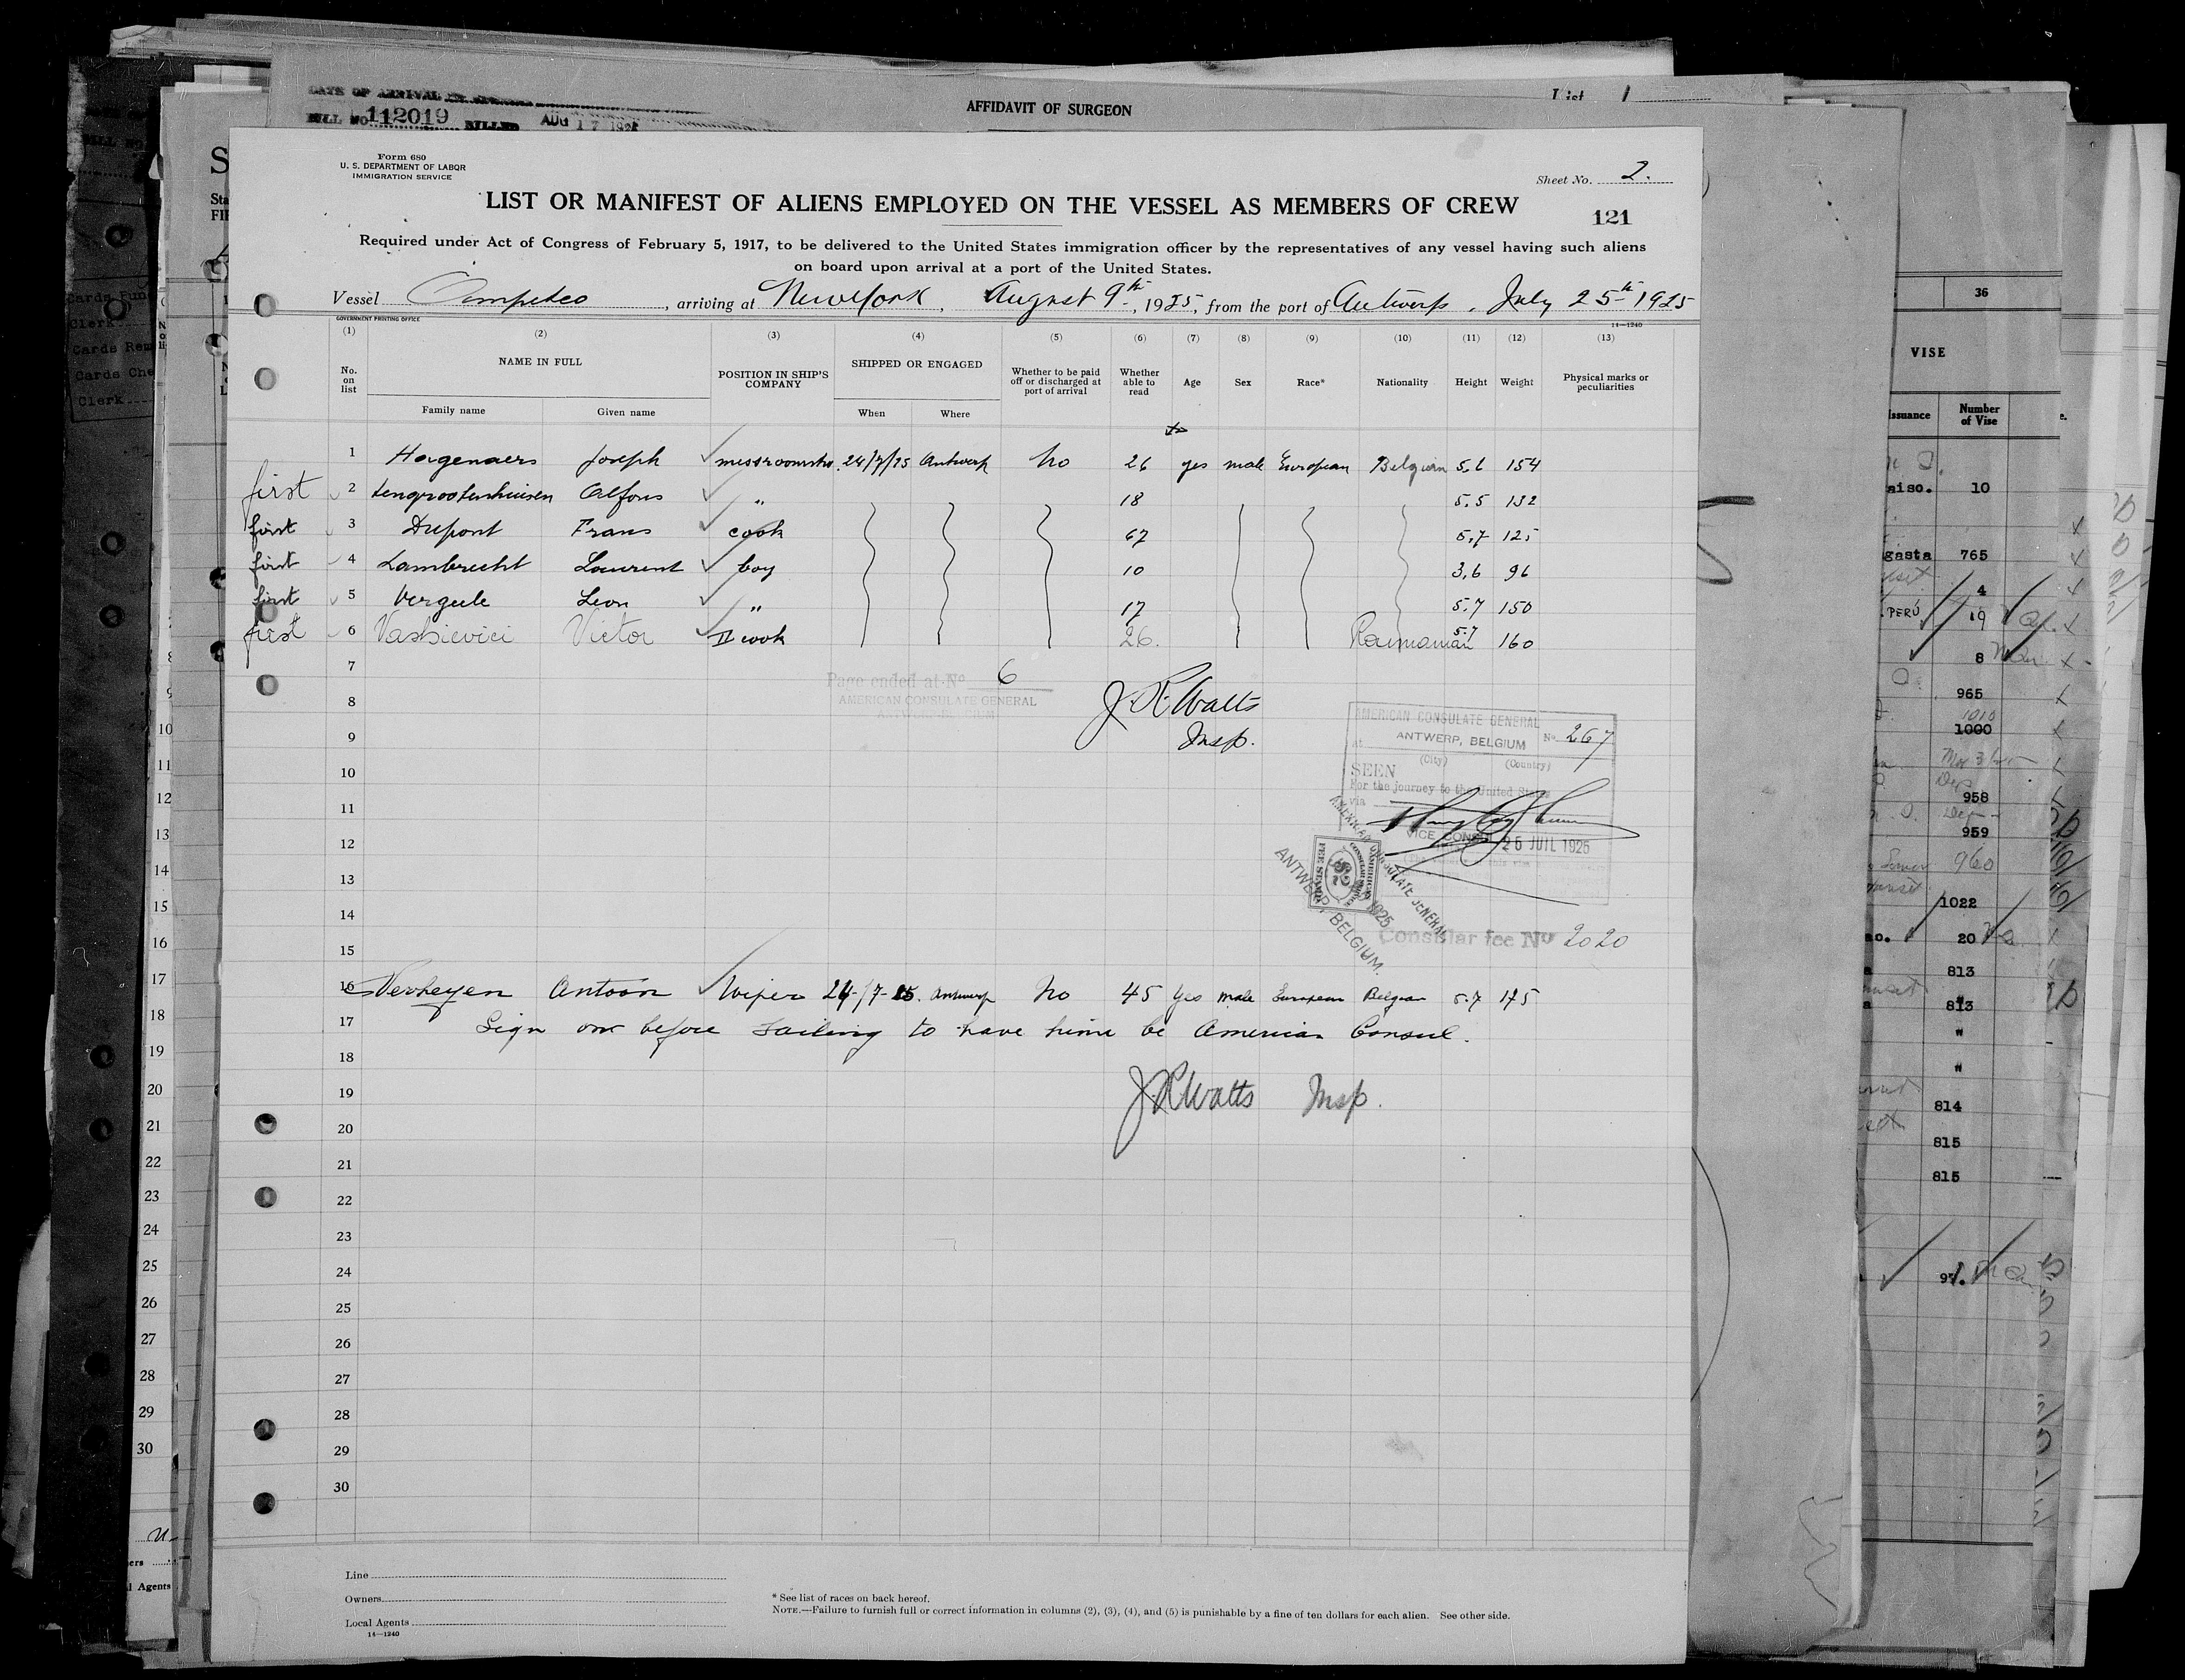 AFFIDAVIT OF SURGEON
List 1
BILL No 112019 BILLED AUG 17
Form 680
U. S. DEPARTMENT OF LABOR
IMMIGRATION SERVICE
Sheet No. 2.
LIST OR MANIFEST OF ALIENS EMPLOYED ON THE VESSEL AS MEMBERS OF CREW
121
Required under Act of Congress of February 5, 1917, to be delivered to the United States immigration officer by the representatives of any vessel having such aliens
on board upon arrival at a port of the United States.
Vessel , arriving at New York, August 9th, 1925, from the port of Antwerp, July 25th 1925
GOVERNMENT PRINTING OFFICE
14—1240
(1) (2) (3) (4) (5) (6) (7) (8) (9) (10) (11) (12) (13)
No. on list NAME IN FULL POSITION IN SHIP'S COMPANY SHIPPED OR ENGAGED Whether to be paid off or discharged at port of arrival Whether able to read Age Sex Race* Nationality Height Weight Physical marks or peculiarities
Family name Given name When Where
1 Hagenaers Joseph 24/7/25 Antwerp No 26 yes male European Belgian 5.6 154
first 2 Alfons " 18 5.5 132
first 3 Dupont Frans cook 67 5.7 125
first 4 Lambrecht Laurent boy 10 3.6 96
first 5 Leon " 17 5.7 150
first 6 Victor II cook 26. 5.7 160
7
Page ended at No 6
8
AMERICAN CONSULATE GENERAL
J. R. Watts
9
Insp.
AMERICAN CONSULATE GENERAL
ANTWERP, BELGIUM No. 267
At (City) (Country)
10
SEEN
For the journey to the United States
11
via
VICE CONSUL
25 JUIL 1925
12
AMERICAN CONSULATE GENERAL
ANTWERP, BELGIUM.
FEE STAMP
13
14
Consular fee No 2020
15
16 Verheyen Antoon Wiper 24/7-25. Antwerp No 45 Yes male European Belgian 5.7 175
17 Sign before sailing to have him be American Consul.
18
19 J. R. Watts Insp.
20
21
22
23
24
25
26
27
28
29
30
Line
Owners
Local Agents
14—1240
* See list of races on back hereof.
NOTE.—Failure to furnish full or correct information in columns (2), (3), (4), and (5) is punishable by a fine of ten dollars for each alien. See other side.
10
11
12
13
14
15
16
17
18
19
20
21
22
23
24
25
26
27
28
29
30
l Agents
36
VISE
Number of Vise
10
765
4
PERU 19
8
965
1010
1000
958
959
960
1022
20
813
813
"
"
814
815
815